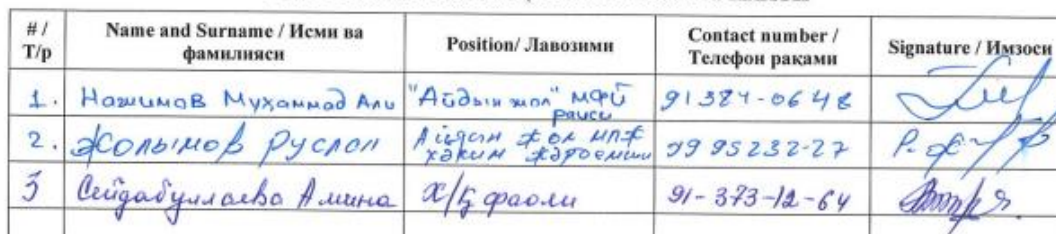 # / Т/р
Name and Surname / Исми ва фамилияси
Position/ Лавозими
Contact number / Телефон рақами
Signature / Имзоси
1. Нажимов Мухаммад Али "Айдын жол" МФЙ раиси 91 384-06 48
2. Жолымов Руслан Айдын жол МПЖ ҳәким жәрдемши 99 95232-27
3 Сейдабуллаева Амина х/қ фаоли 91-373-12-64